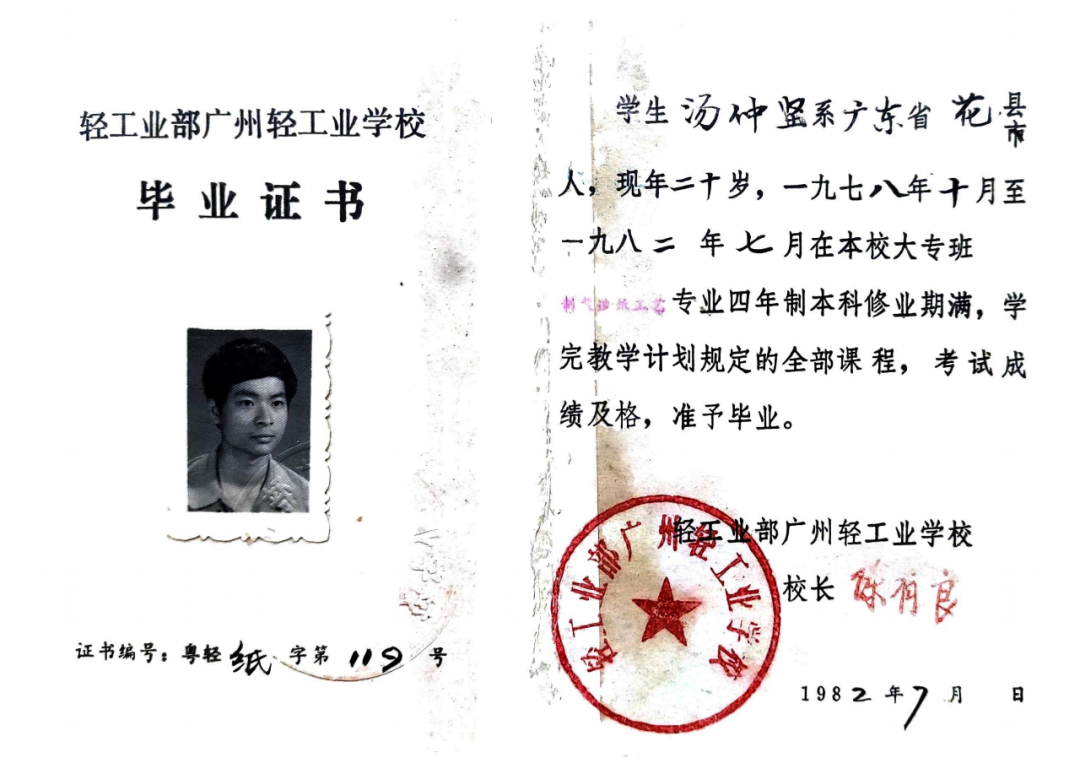 轻工业部广州轻工业学校
毕业证书
证书编号：粤轻纸字第119号
学生汤仲坚系广东省花县市
人，现年二十岁，一九七八年十月至
一九八二年七月在本校大专班
制气造纸工艺专业四年制本科修业期满，学
完教学计划规定的全部课程，考试成
绩及格，准予毕业。
轻工业部广州轻工业学校
校长 陈有良
轻工业部广州轻工业学校
1982年7月 日